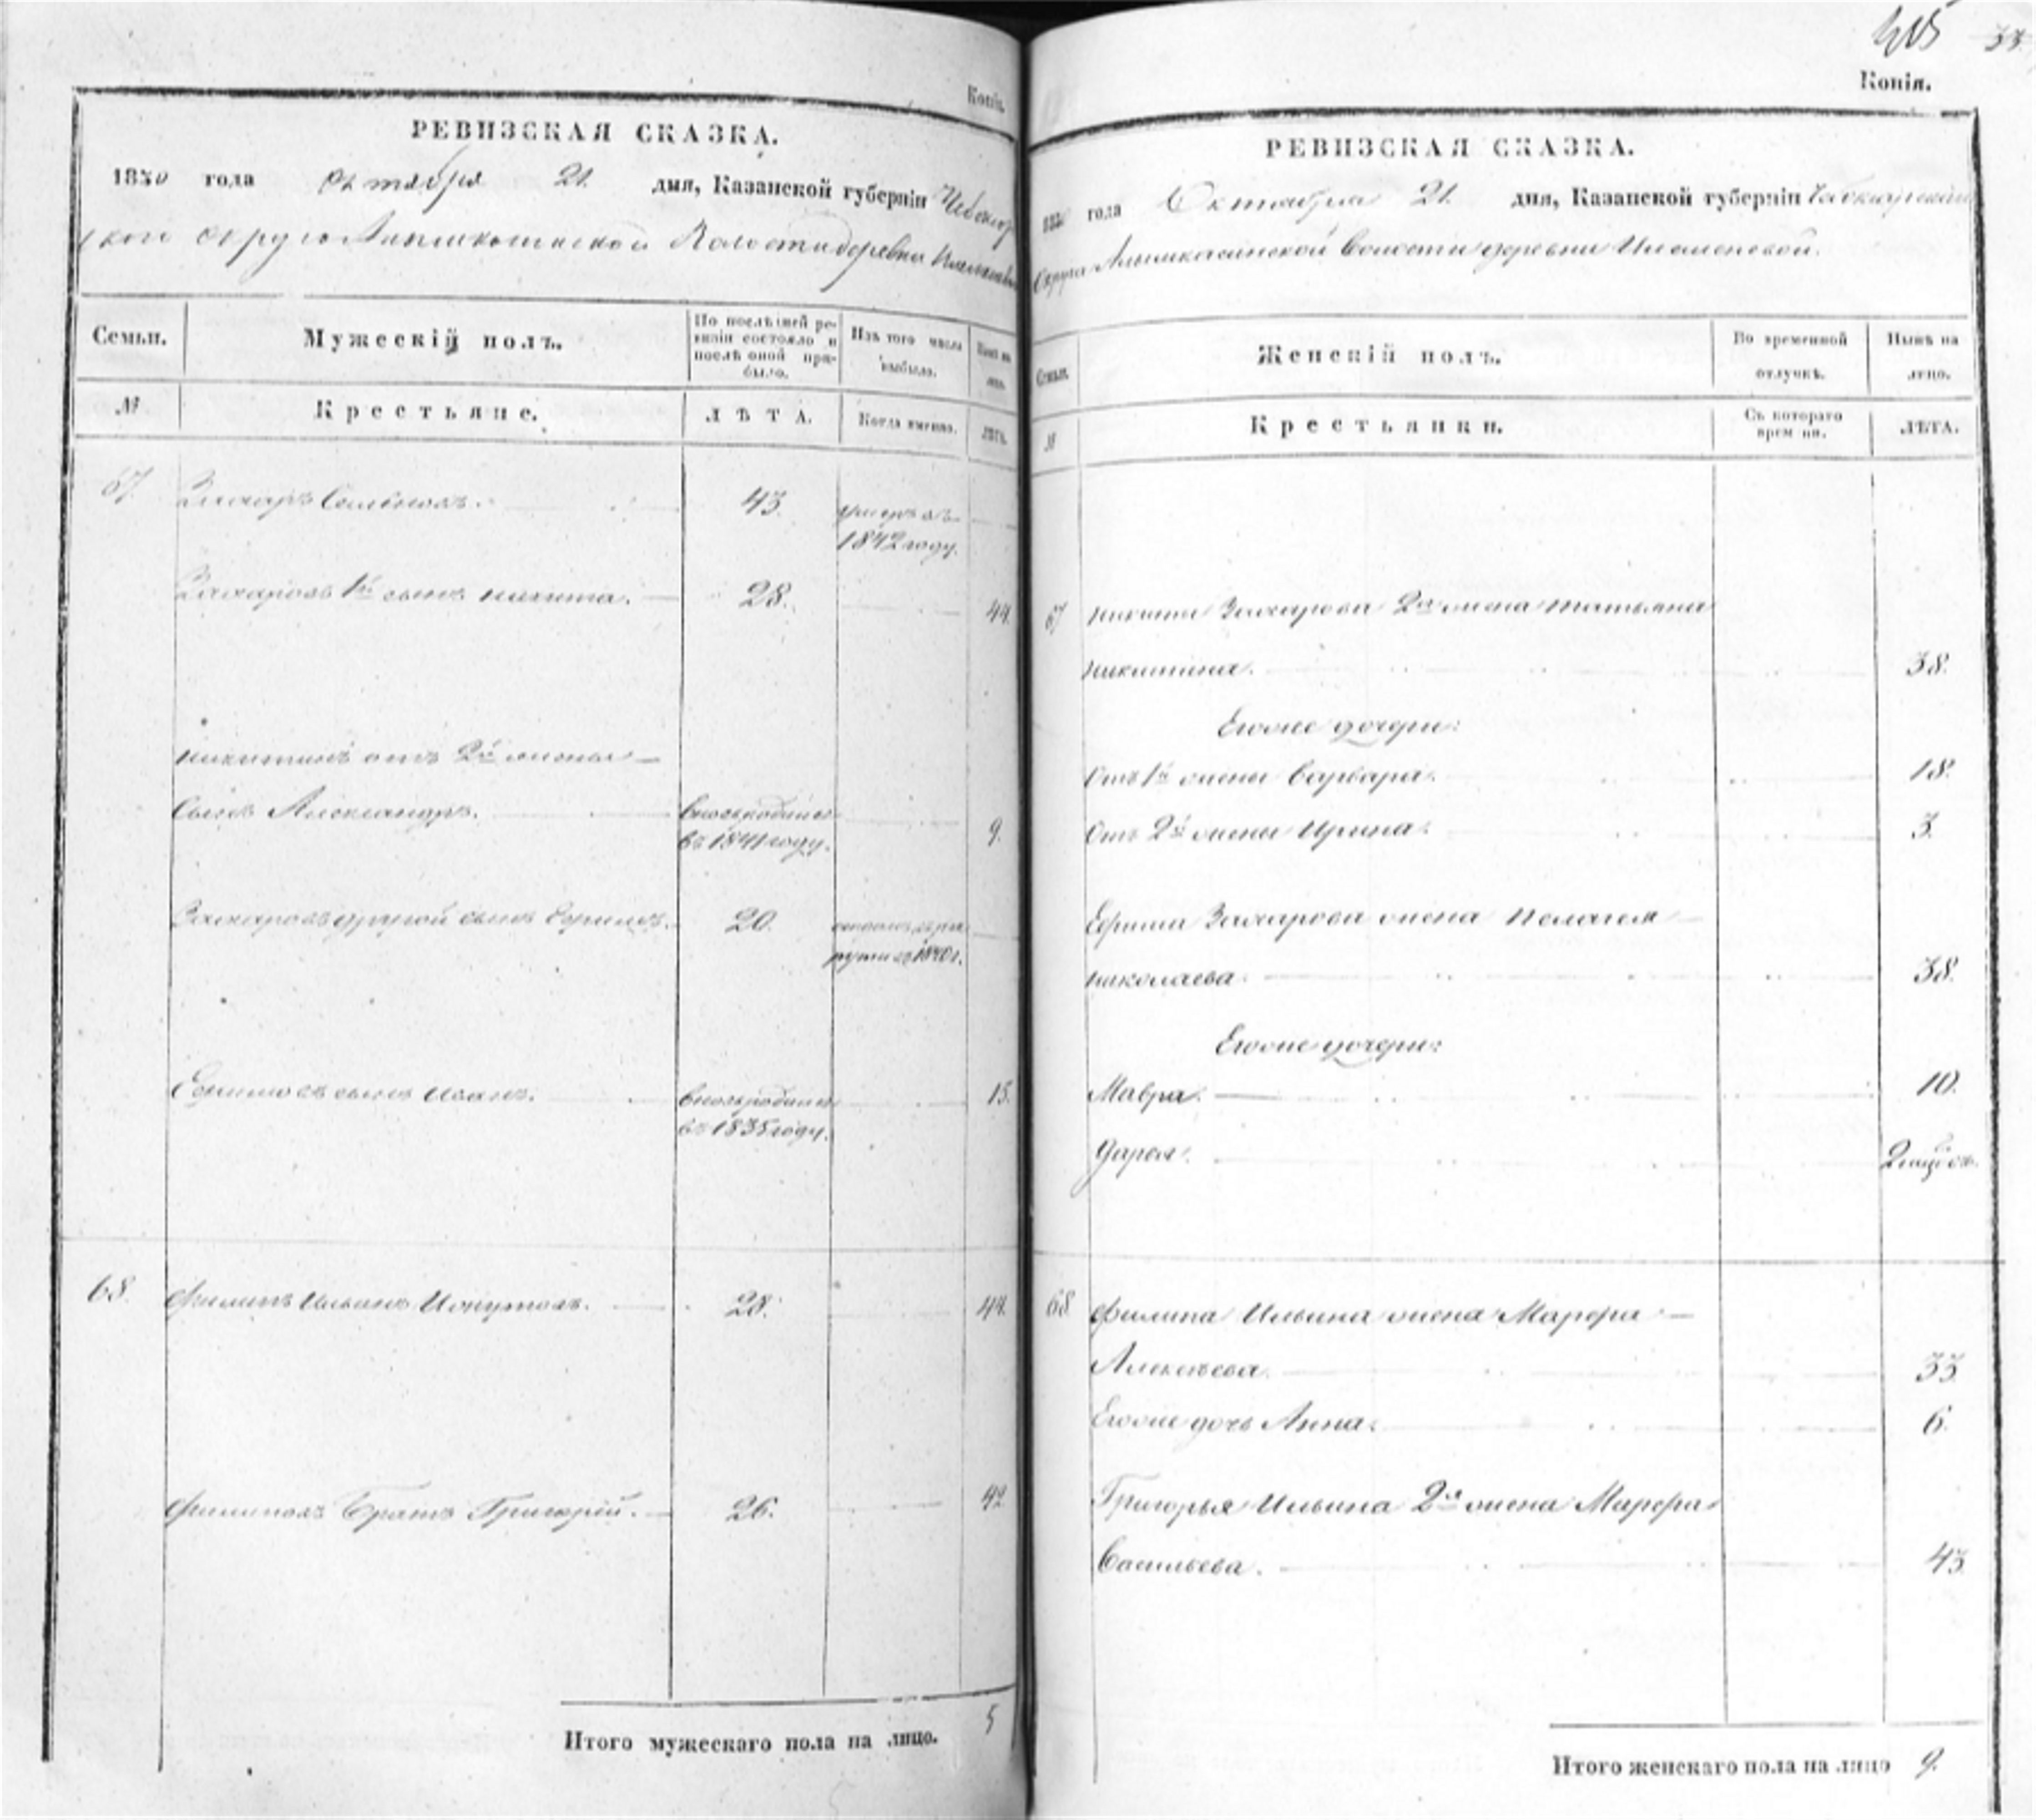 Копія.
РЕВИЗСКАЯ СКАЗКА.
1850 года Октября 21. дня, Казанской губерніи Чебокар
ской округи Волости деревни
Семьи.
Мужескій полъ.
По послѣдней ре-
визіи состояло и
послѣ оной при-
было.
Изъ того числа
выбыло.
№
Крестьяне.
ЛѢТА.
Когда именно.
ЛѢТА.
67. Захаръ Семеновъ. 43. умеръ въ
1842 году.
Захаровъ 1й сынъ Никита. 28. 44.
Никитинъ отъ 2й жены
Сынъ Александръ. вновьрожденъ 9.
въ 1841 году.
Захаровъ другой сынъ Ефимъ. 20.
1840 г.
Ефимовъ сынъ Иванъ. вновьрожденъ 15.
въ 1835 году.
68. Филипъ Ильинъ 28. 44.
Филиповъ Братъ Григорій. 26. 42
Итого мужескаго пола на лицо. 5
33
Копія.
РЕВИЗСКАЯ СКАЗКА.
1850 года Октября 21. дня, Казанской губерніи Чебокарской
Округи Волости деревни
Семьи.
Женскій полъ.
Во временной
отлучкѣ.
Нынѣ на
лицо.
№
Крестьянки.
Съ котораго
времени.
ЛѢТА.
67 Никиты Захарова 2я жена Татьяна
Никитина. 38.
Егоже дочери:
Отъ 1й жены Варвара. 18.
Отъ 2й жены Ирина. 3.
Ефима Захарова жена Пелагея
Николаева. 38.
Егоже дочери:
Мавра. 10.
Дарья. 2
68 Филипа Ильина жена Марфа
Алексѣева. 33.
Егоже дочь Анна. 6.
Григорья Ильина 2я жена Марфа
Васильева. 43.
Итого женскаго пола на лицо 9.